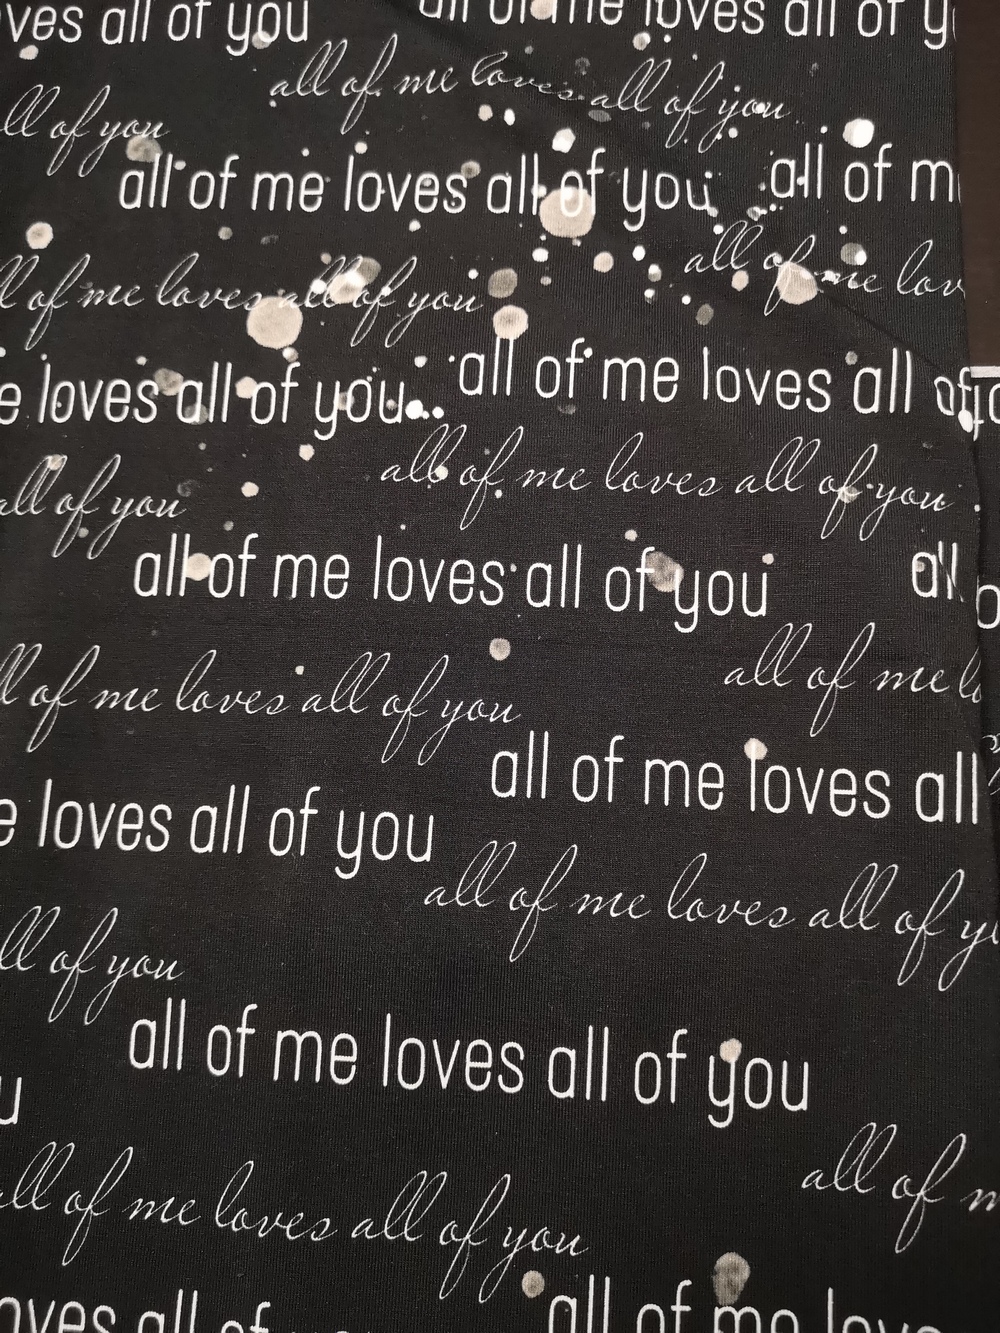 ves all of you
all of me loves all of y
all of me loves all of you
ll of you
all of me loves all of you
all of m
all of me lov
l of me loves all of you
all of me loves all of
e loves all of you
all of me loves all of you
all of you
all of me loves all of you
al
all of me l
l of me loves all of you
all of me loves all
e loves all of you
all of me loves all of y
ll of you
all of me loves all of you
u
all of m
all of me loves all of you
all of me love
oves all of